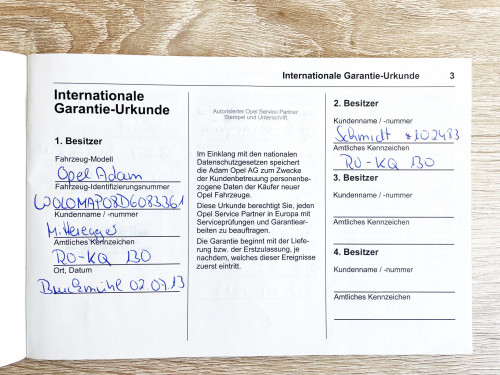 Internationale Garantie-Urkunde 3
Internationale
Garantie-Urkunde
1. Besitzer
Fahrzeug-Modell
Opel Adam
Fahrzeug-Identifizierungsnummer
W0L0MAP08D6083361
Kundenname / -nummer
M. Heregger
Amtliches Kennzeichen
RO-KQ 130
Ort, Datum
Bruckmühl 02.07.13
Autorisierter Opel Service Partner
Stempel und Unterschrift
Im Einklang mit den nationalen
Datenschutzgesetzen speichert
die Adam Opel AG zum Zwecke
der Kundenbetreuung personenbe-
zogene Daten der Käufer neuer
Opel Fahrzeuge.
Diese Urkunde berechtigt Sie, jeden
Opel Service Partner in Europa mit
Serviceprüfungen und Garantiear-
beiten zu beauftragen.
Die Garantie beginnt mit der Liefe-
rung bzw. der Erstzulassung, je
nachdem, welches dieser Ereignisse
zuerst eintritt.
2. Besitzer
Kundenname / -nummer
Schmidt *102483
Amtliches Kennzeichen
RO-KQ 130
3. Besitzer
Kundenname / -nummer
Amtliches Kennzeichen
4. Besitzer
Kundenname / -nummer
Amtliches Kennzeichen